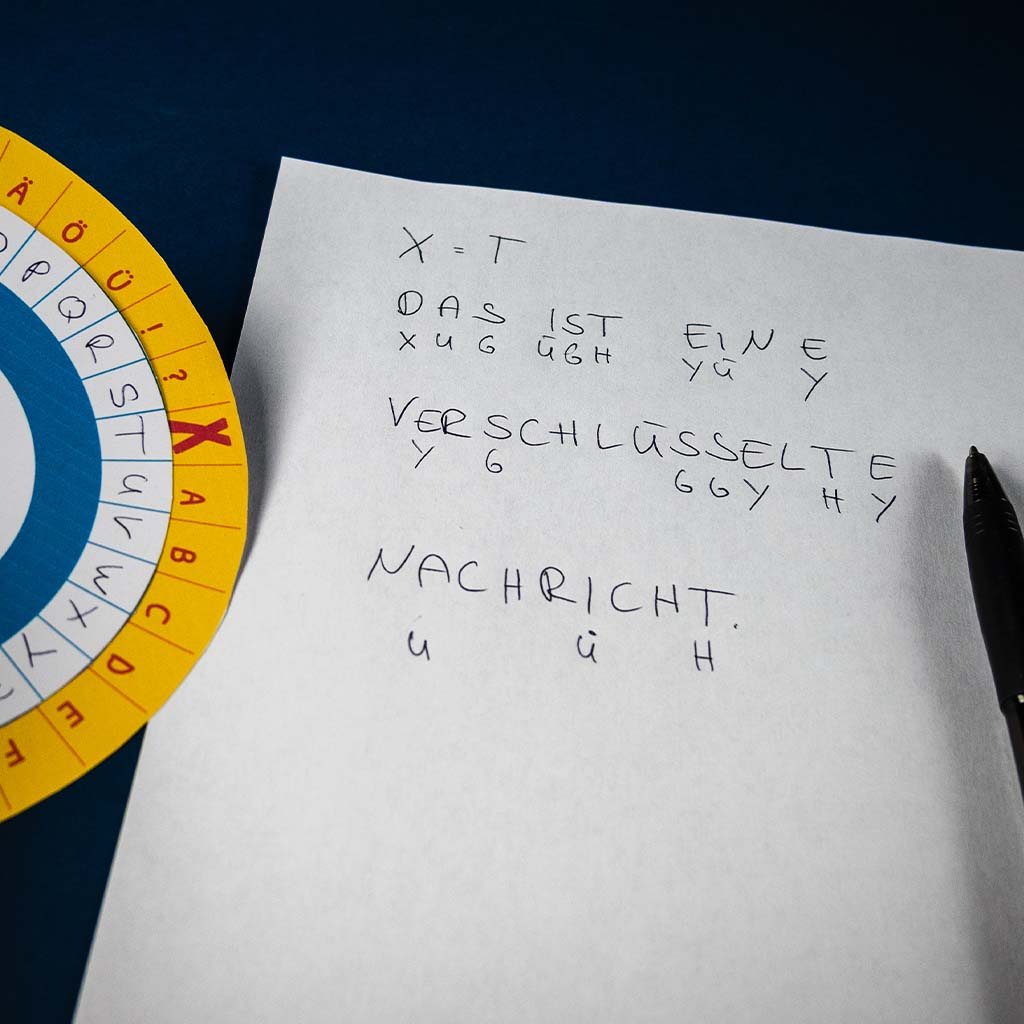 Ä Ö Ü ! ? X A B C D E F
P Q R S T U V W X Y
X = T
DAS IST EINE
XUG ÜGH YÜ Y
VERSCHLÜSSELTE
Y G GGY H Y
NACHRICHT.
U Ü H